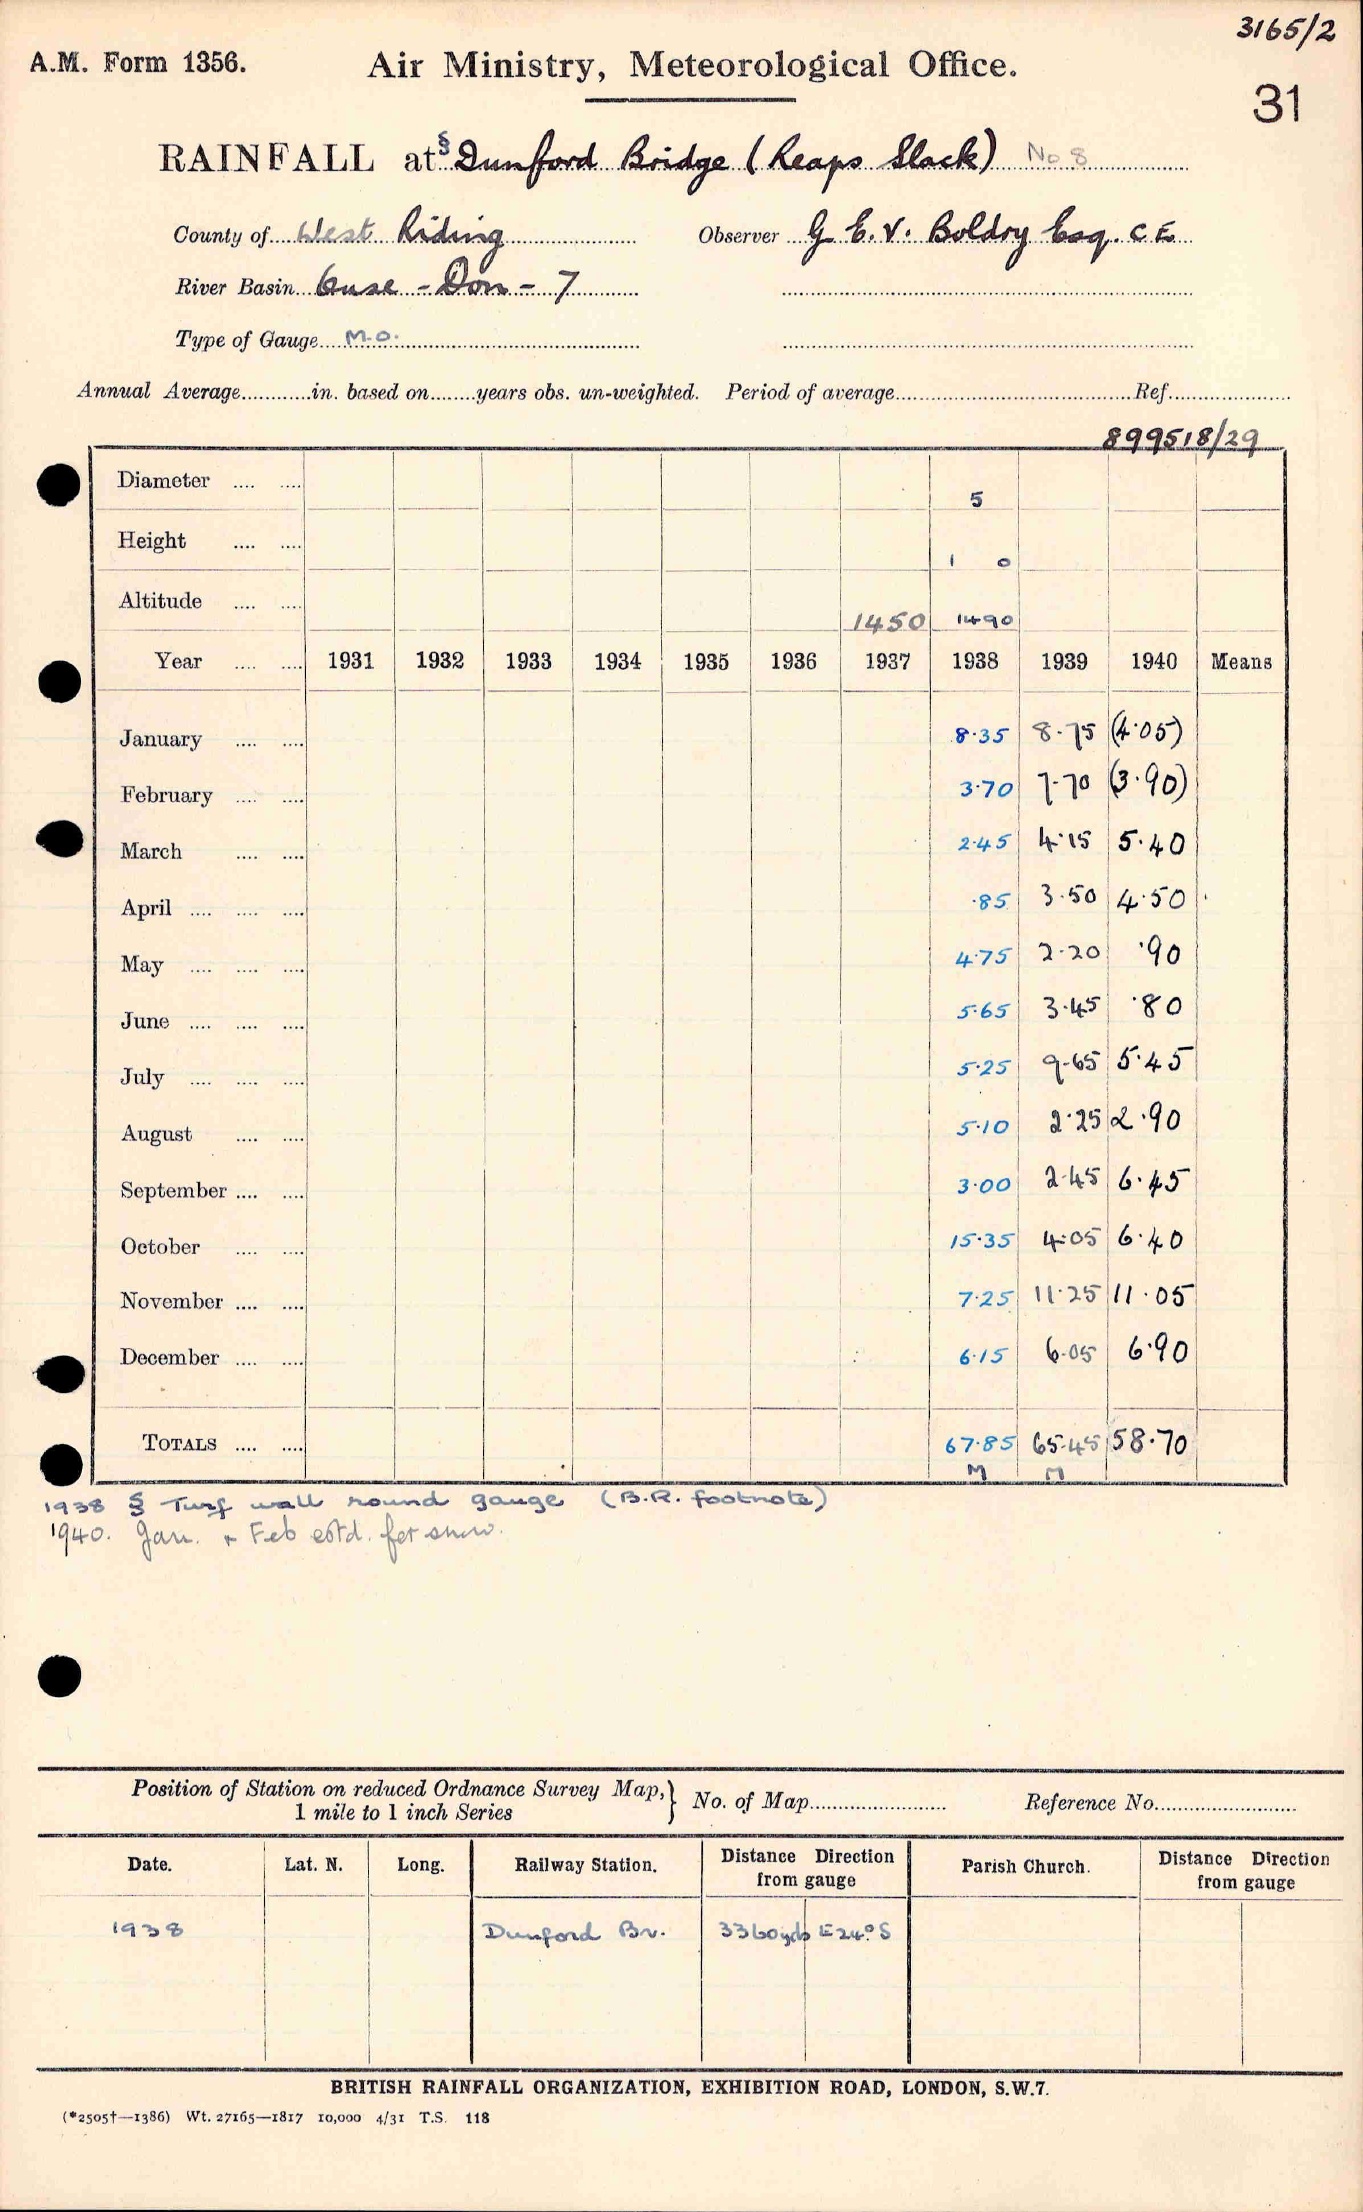 3165/2
A.M. Form 1356. Air Ministry, Meteorological Office.
31
RAINFALL at § Dunford Bridge (Reaps Slack) No 8
County of West Riding Observer G. E. V. Boldry Esq. C E
River Basin Ouse - Don - 7
Type of Gauge M.O.
Annual Average............in. based on........years obs. un-weighted. Period of average........................Ref.....................
899518/29
Diameter .... .... 5
Height .... .... 1 0
Altitude .... .... 1450 1490
Year .... .... 1931 1932 1933 1934 1935 1936 1937 1938 1939 1940 Means
January .... .... 8·35 8·75 (4·05)
February .... .... 3·70 7·70 (3·90)
March .... .... 2·45 4·15 5·40
April .... .... .... ·85 3·50 4·50
May .... .... .... 4·75 2·20 ·90
June .... .... .... 5·65 3·45 ·80
July .... .... .... 5·25 9·65 5·45
August .... .... 5·10 2·25 2·90
September .... .... 3·00 2·45 6·45
October .... .... 15·35 4·05 6·40
November .... .... 7·25 11·25 11·05
December .... .... 6·15 6·05 6·90
TOTALS .... .... 67·85 65·45 58·70
M M
1938 § Turf wall round gauge (B.R. footnote)
1940. Jan. & Feb estd. for snow.
Position of Station on reduced Ordnance Survey Map, } No. of Map........................ Reference No.........................
1 mile to 1 inch Series
Date. Lat. N. Long. Railway Station. Distance Direction from gauge Parish Church. Distance Direction from gauge
1938 Dunford Br. 3360yds E24°S
BRITISH RAINFALL ORGANIZATION, EXHIBITION ROAD, LONDON, S.W.7.
(*2505†—1386) Wt. 27165—1817 10,000 4/31 T.S. 118